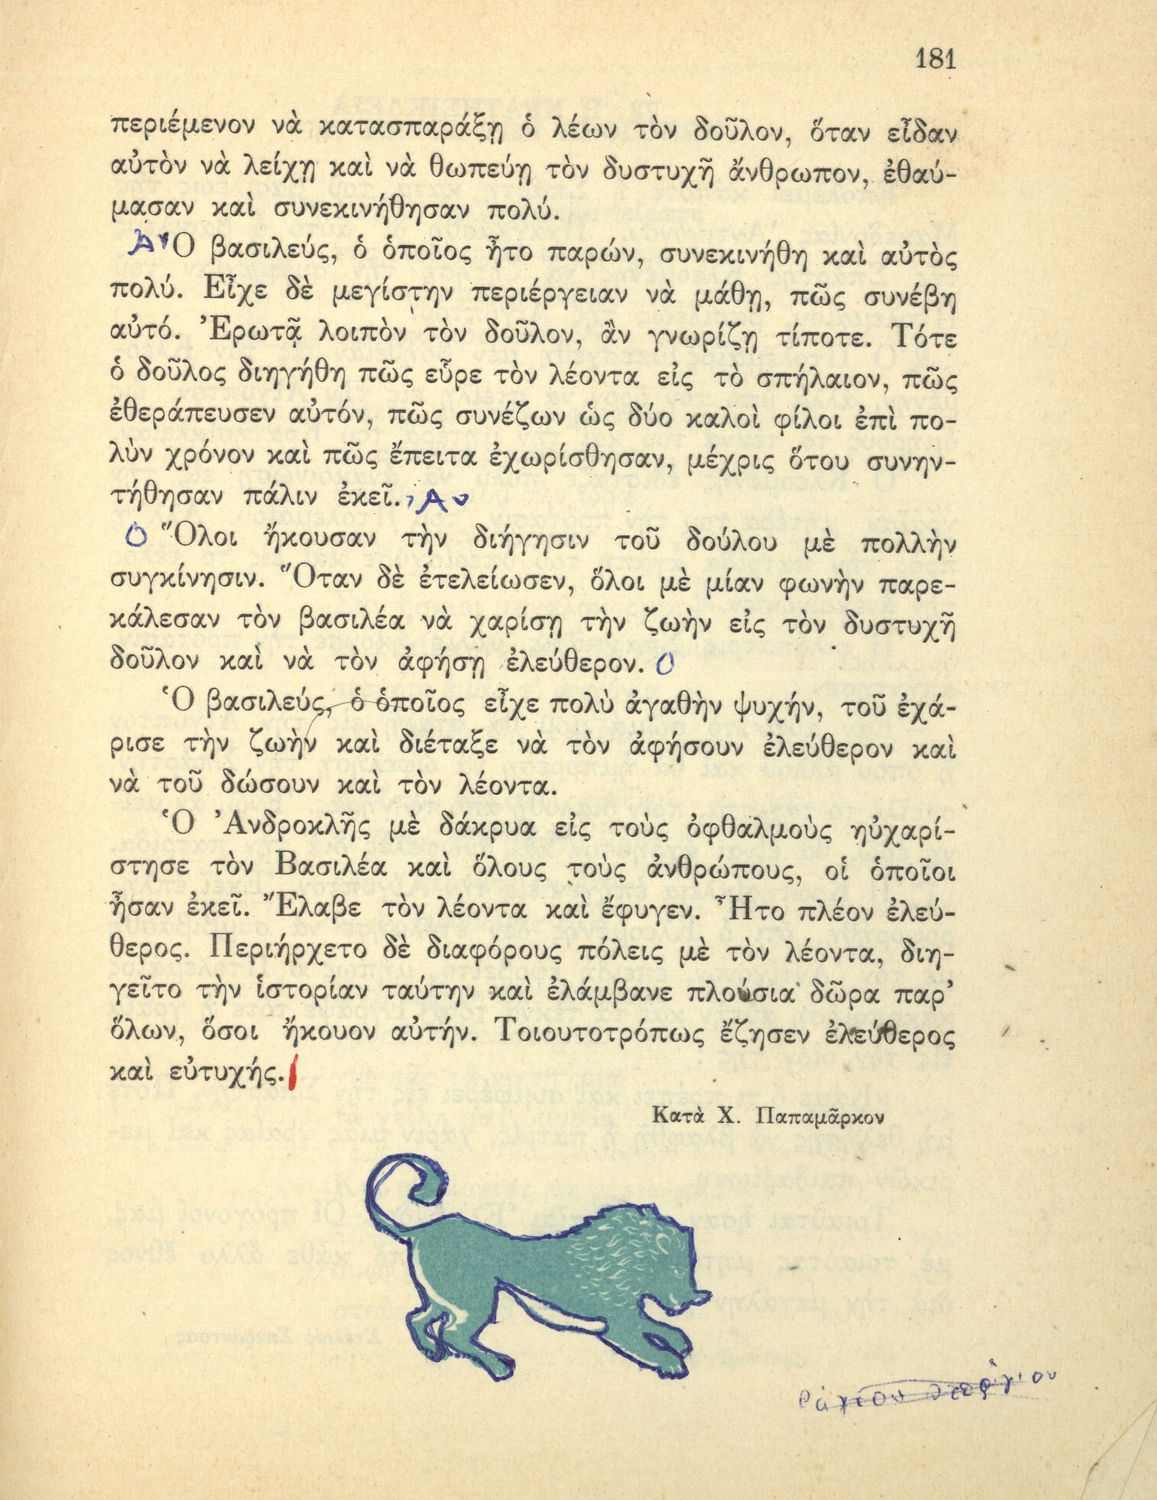 181
περιέμενον νὰ κατασπαράξῃ ὁ λέων τὸν δοῦλον, ὅταν εἶδαν
αὐτὸν νὰ λείχῃ καὶ νὰ θωπεύῃ τὸν δυστυχῆ ἄνθρωπον, ἐθαύ-
μασαν καὶ συνεκινήθησαν πολύ.
Α Ὁ βασιλεύς, ὁ ὁποῖος ἦτο παρών, συνεκινήθη καὶ αὐτὸς
πολύ. Εἶχε δὲ μεγίστην περιέργειαν νὰ μάθῃ, πῶς συνέβη
αὐτό. Ἐρωτᾷ λοιπὸν τὸν δοῦλον, ἂν γνωρίζῃ τίποτε. Τότε
ὁ δοῦλος διηγήθη πῶς εὗρε τὸν λέοντα εἰς τὸ σπήλαιον, πῶς
ἐθεράπευσεν αὐτόν, πῶς συνέζων ὡς δύο καλοὶ φίλοι ἐπὶ πο-
λὺν χρόνον καὶ πῶς ἔπειτα ἐχωρίσθησαν, μέχρις ὅτου συνην-
τήθησαν πάλιν ἐκεῖ. Α
Ο Ὅλοι ἤκουσαν τὴν διήγησιν τοῦ δούλου μὲ πολλὴν
συγκίνησιν. Ὅταν δὲ ἐτελείωσεν, ὅλοι μὲ μίαν φωνὴν παρε-
κάλεσαν τὸν βασιλέα νὰ χαρίσῃ τὴν ζωὴν εἰς τὸν δυστυχῆ
δοῦλον καὶ νὰ τὸν ἀφήσῃ ἐλεύθερον. Ο
Ὁ βασιλεύς, ὁ ὁποῖος εἶχε πολὺ ἀγαθὴν ψυχήν, τοῦ ἐχά-
ρισε τὴν ζωὴν καὶ διέταξε νὰ τὸν ἀφήσουν ἐλεύθερον καὶ
νὰ τοῦ δώσουν καὶ τὸν λέοντα.
Ὁ Ἀνδροκλῆς μὲ δάκρυα εἰς τοὺς ὀφθαλμοὺς ηὐχαρί-
στησε τὸν Βασιλέα καὶ ὅλους τοὺς ἀνθρώπους, οἱ ὁποῖοι
ἦσαν ἐκεῖ. Ἔλαβε τὸν λέοντα καὶ ἔφυγεν. Ἦτο πλέον ἐλεύ-
θερος. Περιήρχετο δὲ διαφόρους πόλεις μὲ τὸν λέοντα, διη-
γεῖτο τὴν ἱστορίαν ταύτην καὶ ἐλάμβανε πλούσια δῶρα παρ'
ὅλων, ὅσοι ἤκουον αὐτήν. Τοιουτοτρόπως ἔζησεν ἐλεύθερος
καὶ εὐτυχής.
Κατὰ Χ. Παπαμᾶρκον